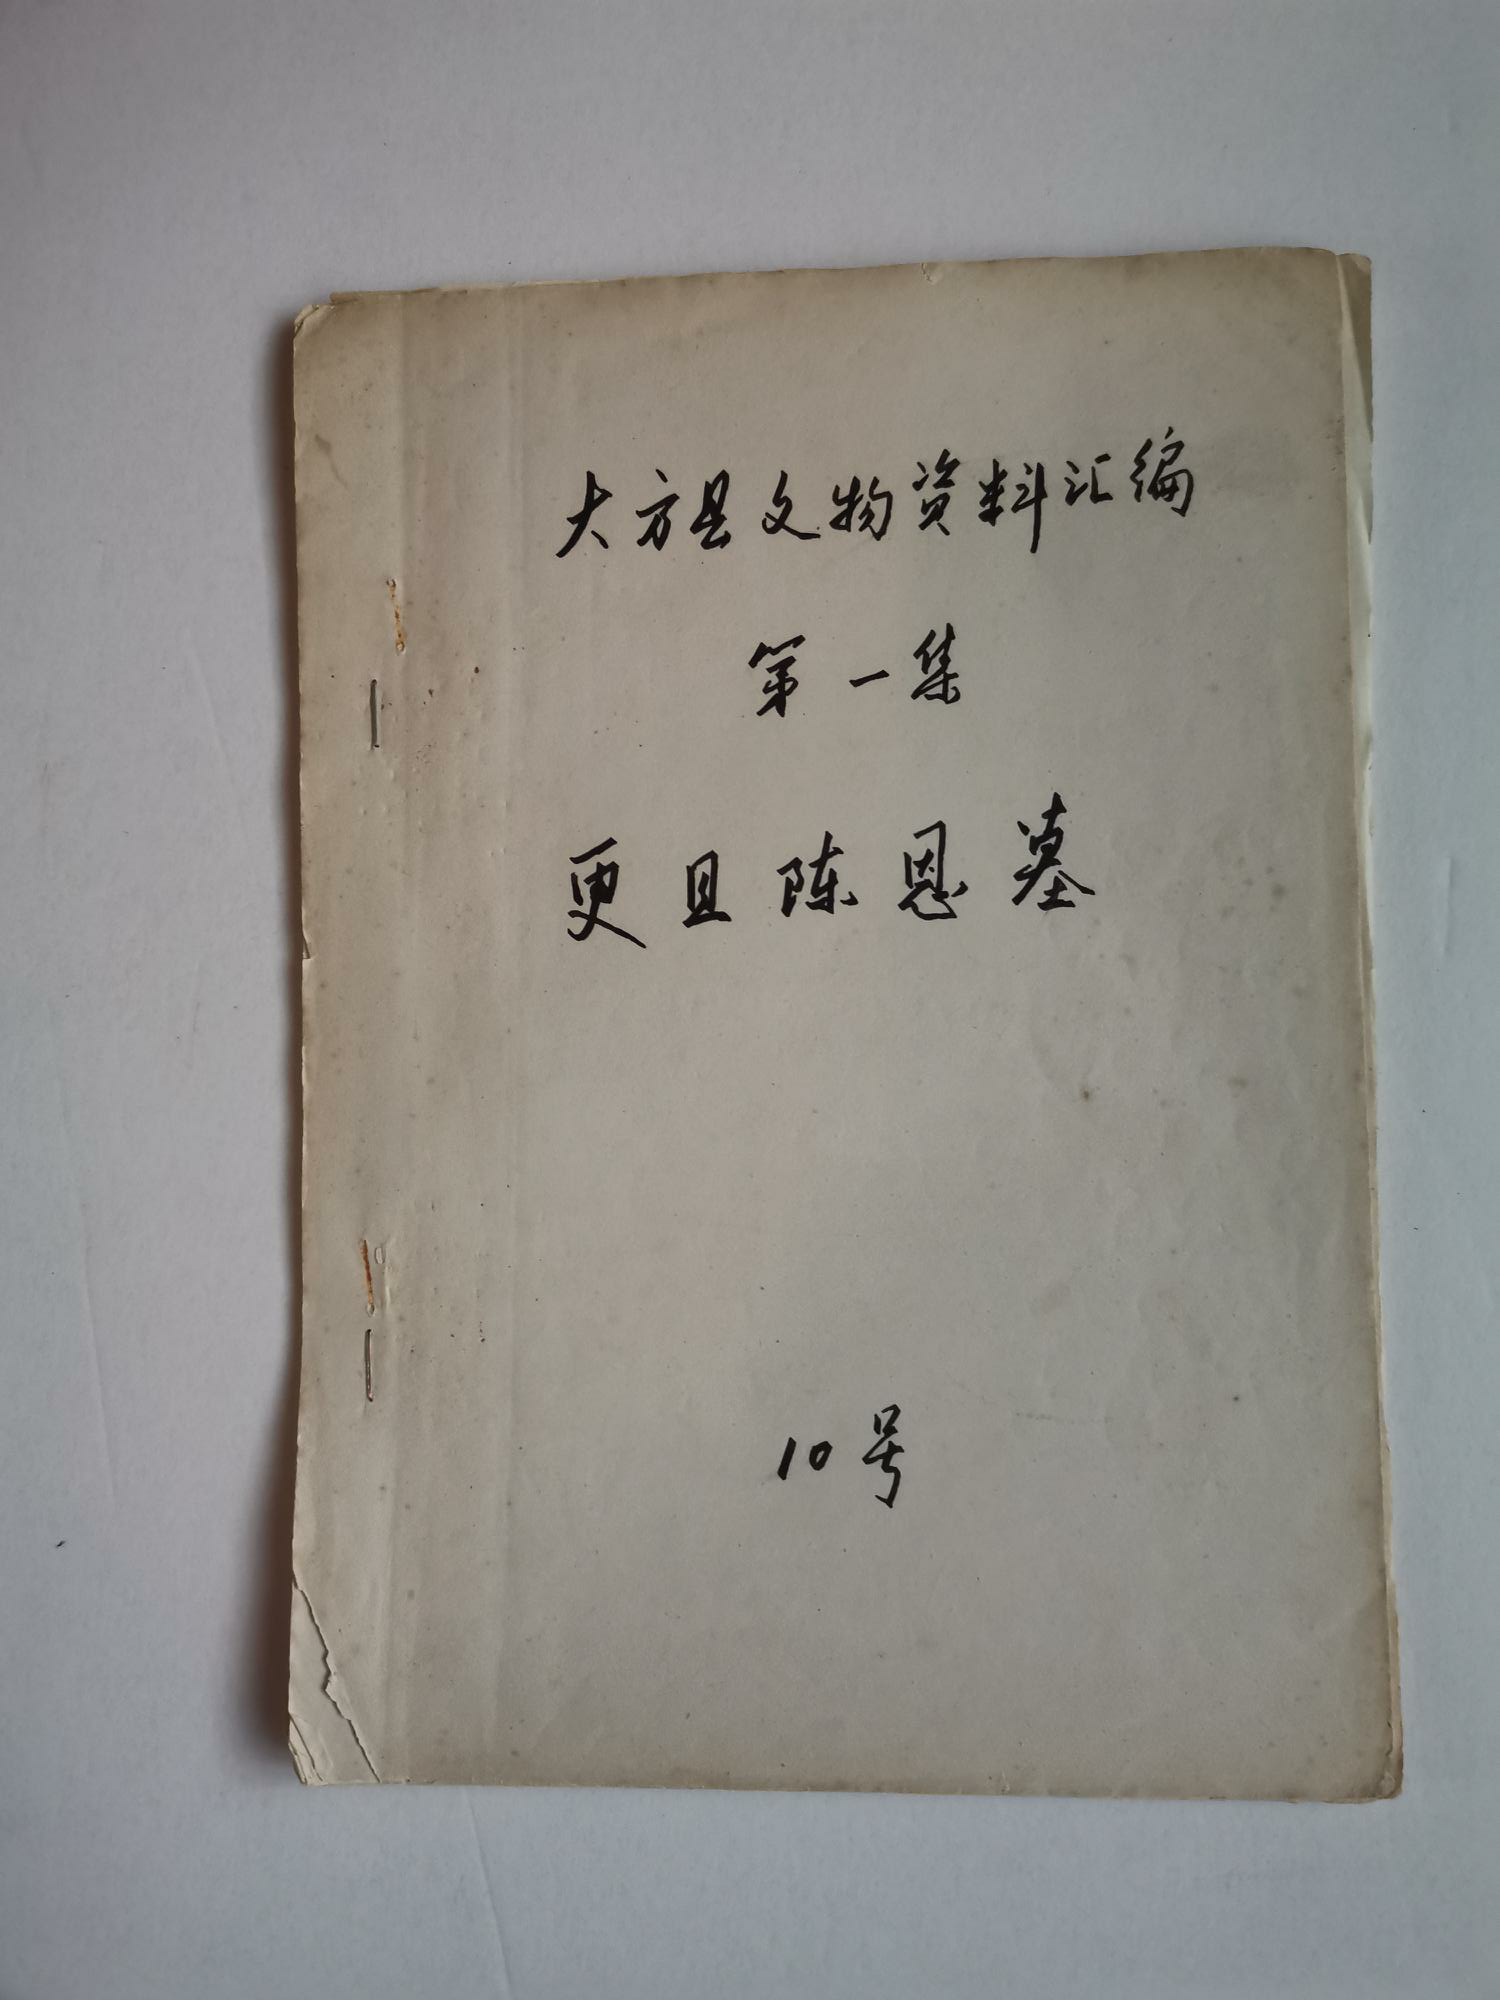 大方县文物资料汇编
第一集
更且陈恩墓
10号